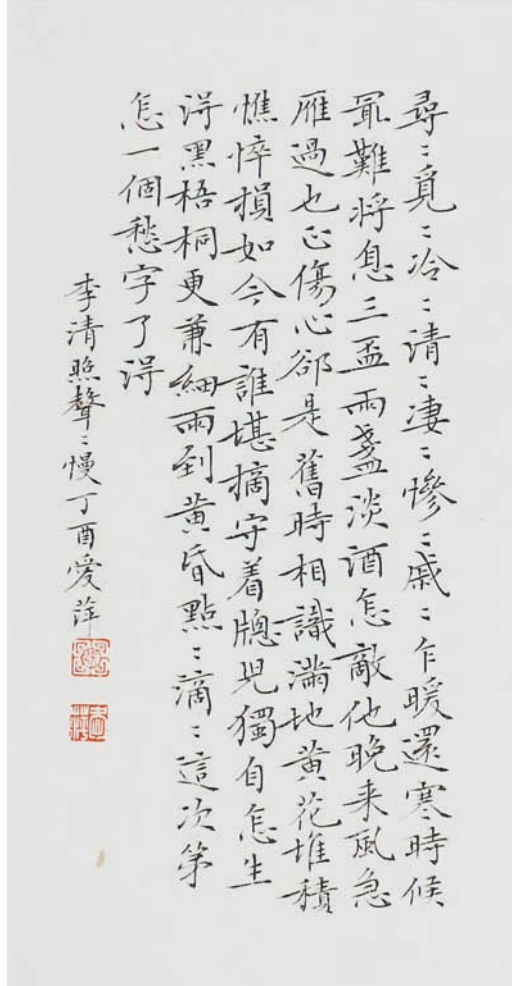 尋〻覓〻冷〻清〻凄〻慘〻戚〻乍暖還寒時候
冣難將息三盃兩盞淡酒怎敵他晚来風急
雁過也正傷心郤是舊時相識滿地黃花堆積
憔悴損如今有誰堪摘守着牕兒獨自怎生
淂黑梧桐更兼細雨到黃昏點〻滴〻這次第
怎一個愁字了淂
李清照聲〻慢丁酉愛萍